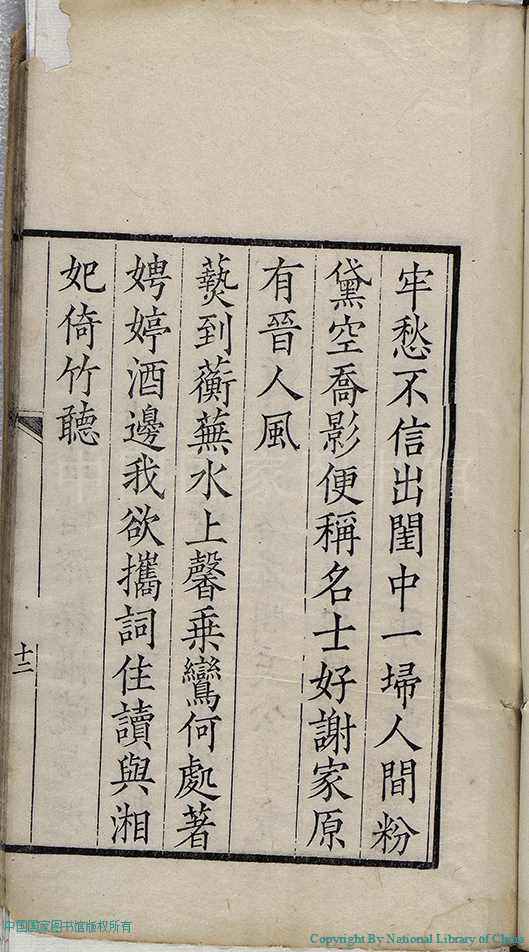 牢愁不信出閨中一埽人間粉
黛空喬影便稱名士好謝家原
有晉人風
爇到蘅蕪水上馨乗鸞何處著
娉婷酒邊我欲攜詞住讀與湘
妃倚竹聽
十二
中国国家图书馆版权所有
Copyright By National Library of China